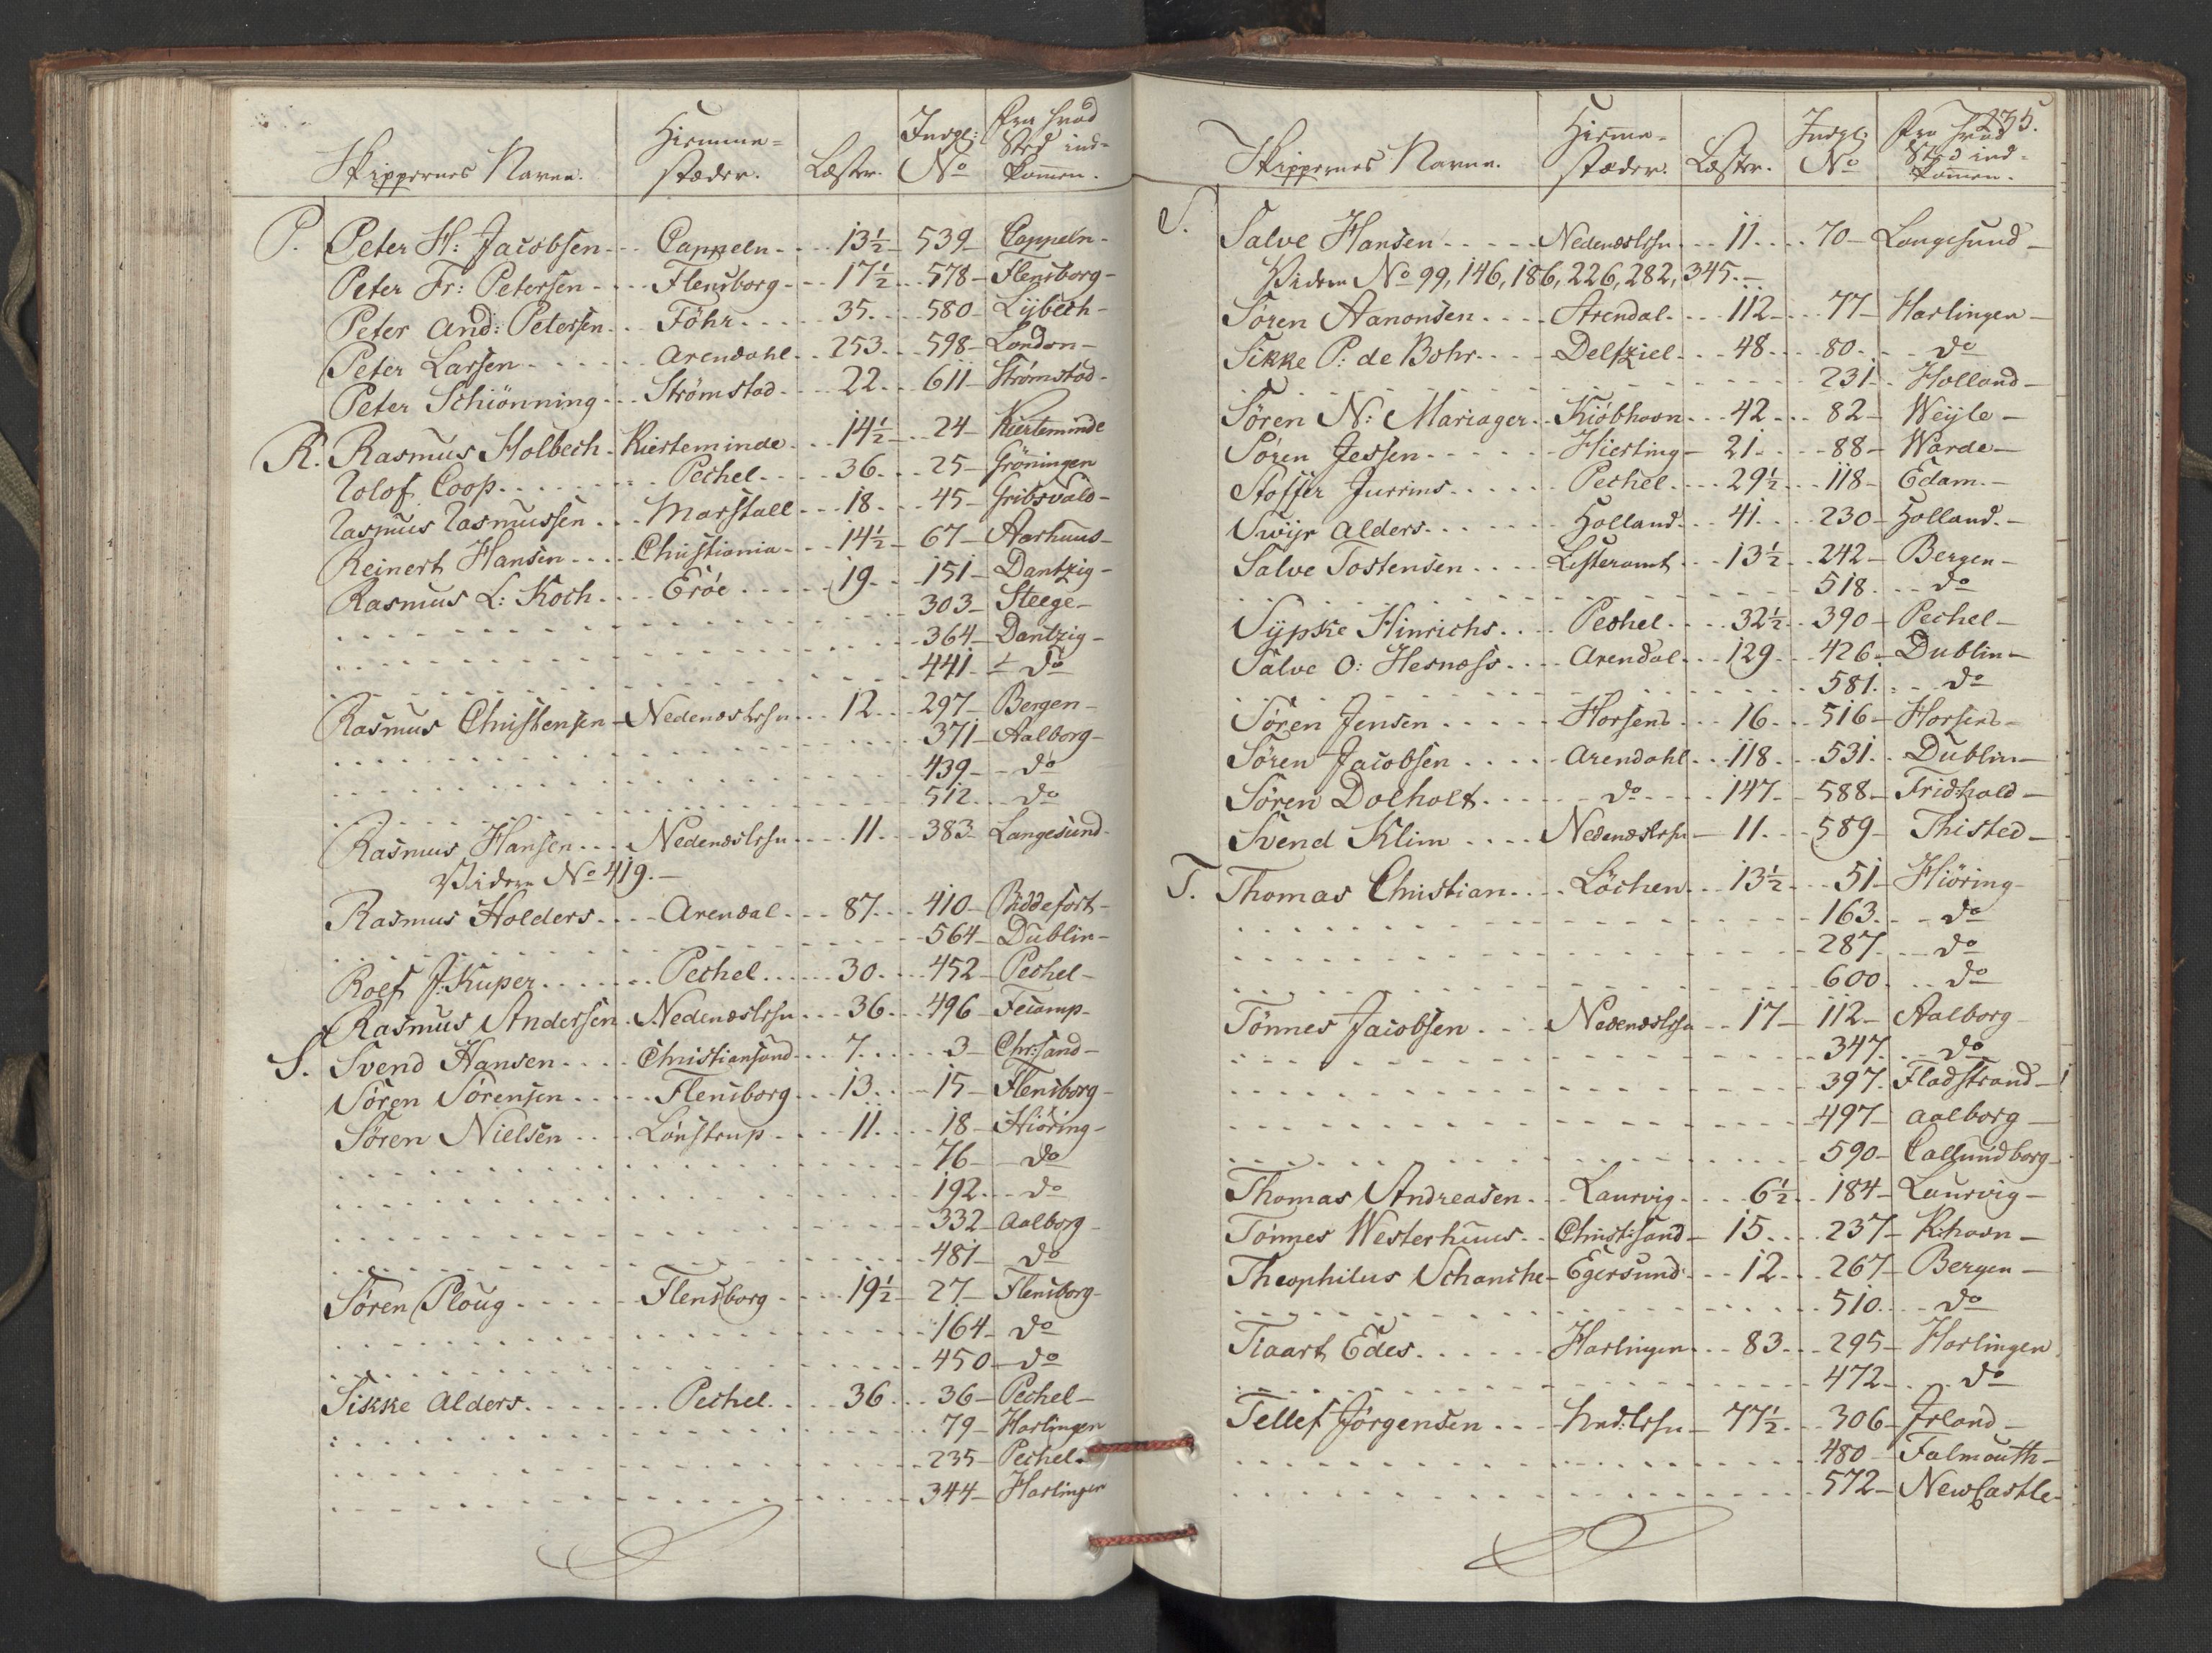 Skippernes Navne. Hiemme-stæder. Læster. Indgl: No Fra hvad Sted ind-kommen.
P. Peter H: Jacobsen - Cappeln - 13½ - 539 - Cappeln -
Peter Fr: Petersen - Flensborg - 17½ - 578 - Flensborg -
Peter And: Petersen - Föhr - 35 - 580 - Lÿbech -
Peter Larsen - Arendahl - 253 - 598 - London -
Peter Schiönning - Strømstad - 22 - 611 - Strømstad -
R. Rasmus Holbech - Kierteminde - 14½ - 24 - Kierteminde
Rolof Coop - Pechel - 36 - 25 - Gröningen
Rasmus Rasmussen - Marstall - 18 - 45 - Gribsvald -
Reinert Hansen - Christiania - 14½ - 67 - Aarhuus -
Rasmus L: Koch - Eröe - 19 - 151 - Dantzig -
303 - Steege -
364 - Dantzig -
441 - do
Rasmus Christensen - Nedenæslehn - 12 - 297 - Bergen -
371 - Aalborg -
439 - do
512 - do
Rasmus Hansen - Nedenæslehn - 11 - 383 - Langesund -
Videre No 419. -
Rasmus Holders - Arendal - 87 - 410 - Biddefort -
564 - Dublin -
Roef J: Kuper - Pechel - 30 - 452 - Pechel -
Rasmus Andersen - Nedenæslehn - 36 - 496 - Fecamp -
S. Svend Hansen - Christiansand - 7 - 3 - Chr:sand -
Søren Sørensen - Flensborg - 13 - 15 - Flensborg -
Søren Nielsen - Lönstrup - 11 - 18 - Hiöring -
76 - do
192 - do
332 - Aalborg -
481 - do
Søren Ploug - Flensborg - 19½ - 27 - Flensborg -
164 - do
450 - do
Sikke Alders - Pechel - 36 - 36 - Pechel -
79 - Harlingen
235 - Pechel -
344 - Harlingen
235.
Skippernes Navne. Hieme-stæder. Læster. Indgl: No Fra hvad Sted ind-kommen.
S. Salve Hansen - Nedenæslehn - 11 - 70 - Langesund -
Videre No 99, 146, 186, 226, 282, 345. -
Søren Aanonsen - Arendal - 112 - 77 - Harlingen -
Sikke P: de Bohr - Delfziel - 48 - 80 - do
231 - Holland -
Søren N: Mariager - Kiöbhavn - 42 - 82 - Weÿle -
Søren Jessen - Hierting - 21 - 88 - Warde -
Stoffer Jurrins - Pechel - 29½ - 118 - Edam. -
Swijr Alders - Holland - 41 - 230 - Holland. -
Salve Tostensen - Listeramt - 13½ - 242 - Bergen -
518 - do
Sÿpske Hinrichs - Pechel - 32½ - 390 - Pechel -
Salve O: Hesnæss - Arendal - 129 - 426 - Dublin -
581 - do
Søren Jensen - Horsens - 16 - 516 - Horsens -
Søren Jacobsen - Arendahl - 118 - 531 - Dublin -
Søren Dolholt - do - 147 - 588 - Fridhald -
Svend Klim - Nedenæslehn - 11 - 589 - Thisted -
T. Thomas Christian - Löchen - 13½ - 51 - Hiöring -
163 - do
287 - do
600 - do
Tönnes Jacobsen - Nedenæslehn - 17 - 112 - Aalborg -
347 - do
397 - Fladstrand -
497 - Aalborg -
590 - Callundborg -
Thomas Andreasen - Laurvig - 6½ - 184 - Laurvig -
Tönnes Westerhuus - Christ:sand - 15 - 237 - K:havn -
Theophilus Schanche - Egersund - 12 - 267 - Bergen -
510 - do
Tiaart Edes - Harlingen - 83 - 295 - Harlingen
472 - do
Tellef Jörgensen - 77½ - 306 - Irland -
480 - Falmouth -
572 - NewCastle -